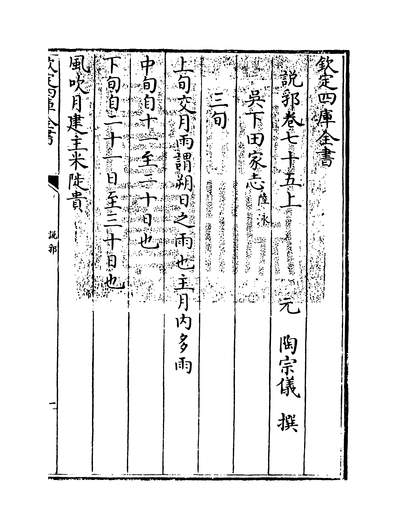 欽定四庫全書
說郛卷七十五上
元　陶宗儀　撰
吳下田家志陸泳
三旬
上旬交月雨謂朔日之雨也主月内多雨
中旬自十一至二十日也
下旬自二十一日至三十日也
風吹月建主米陡貴
欽定四庫全書
說郛
一